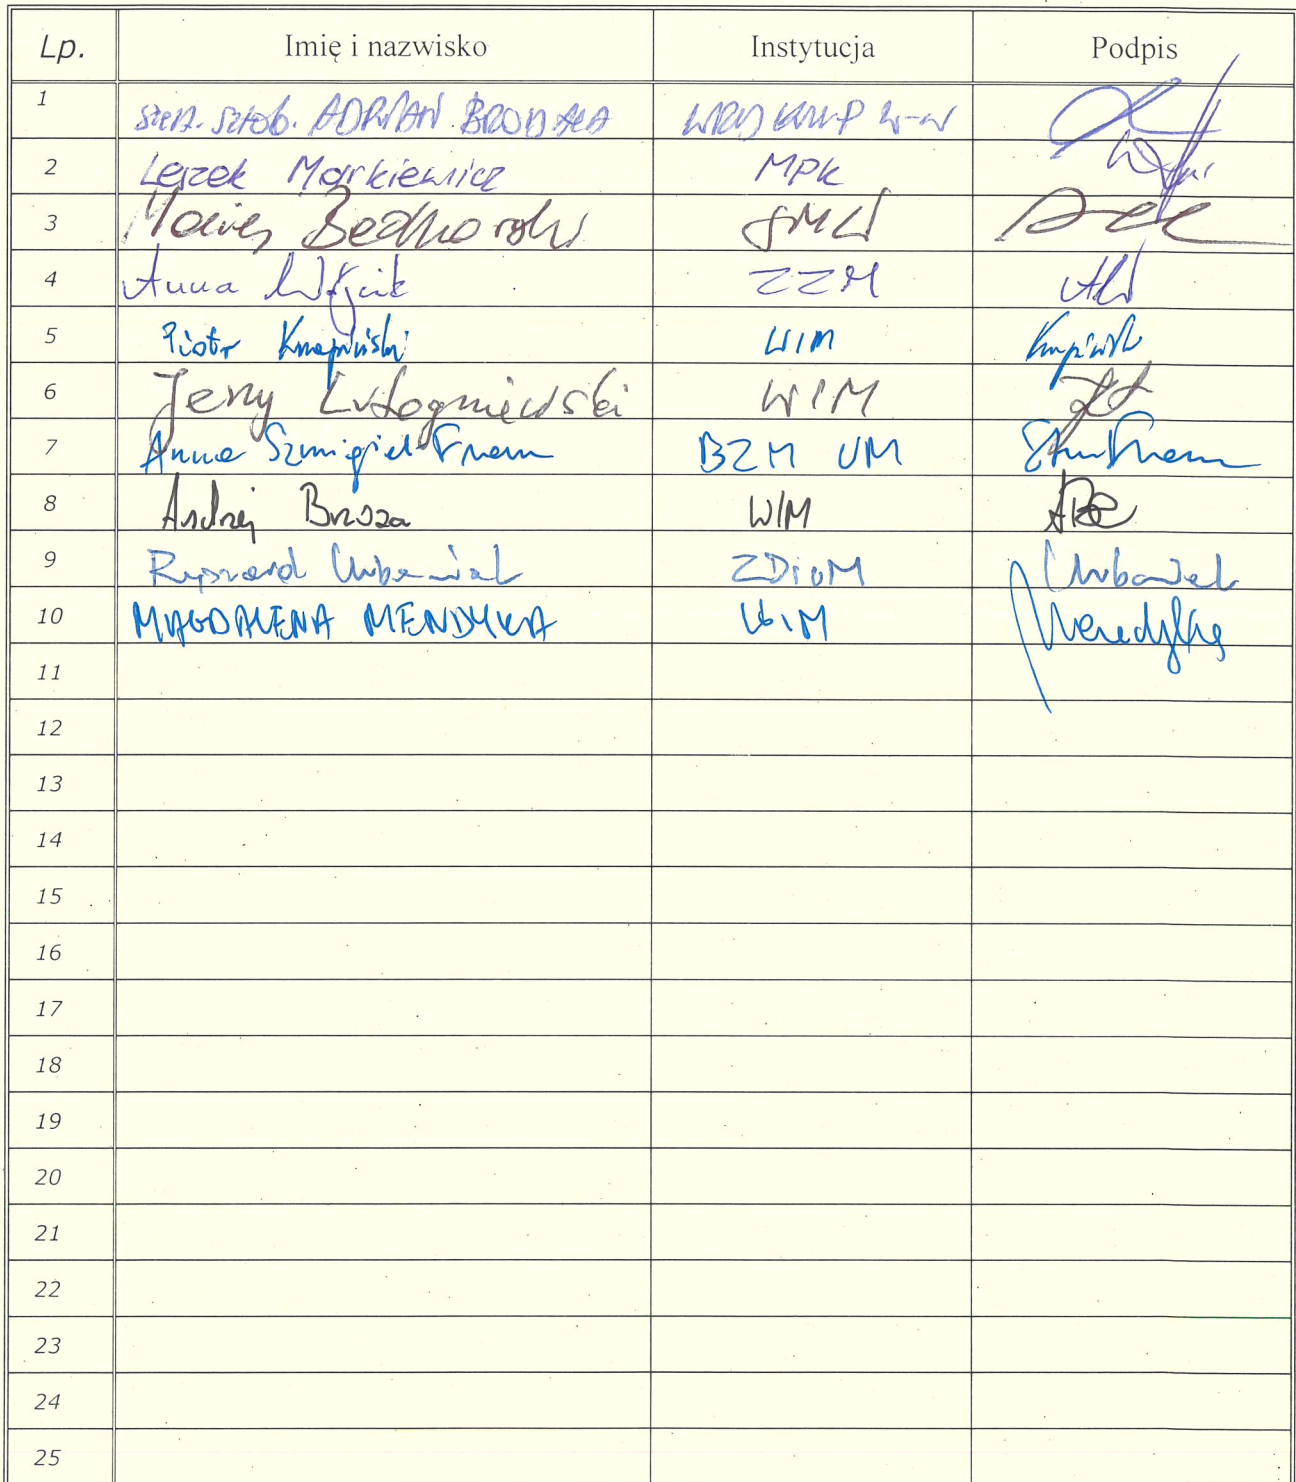 Lp. Imię i nazwisko Instytucja Podpis
1 sierż. sztab. ADRIAN BRODAŁA WRD KMP W-W
2 Leszek Markiewicz MPK
3 Maciej Bednarski SMW
4 Anna Wójcik ZZM AW
5 Piotr Knapiński WIM Knapiński
6 Jerzy Lutogniewski WIM
7 Anna Szmigiel-Franz BZM UM
8 Andrzej Brzoza WIM
9 Ryszard Urbaniak ZDiUM Urbaniak
10 MAGDALENA MENDYKA WIM Mendyka
11
12
13
14
15
16
17
18
19
20
21
22
23
24
25